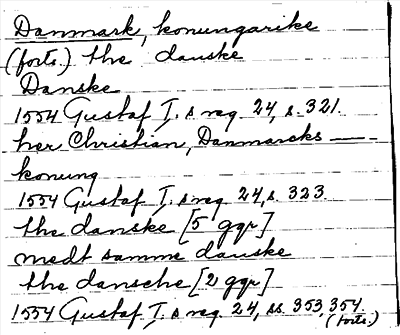 Danmark, konungarike
(forts.) the danske
Danske
1554 Gustaf I. s reg 24, s. 321.
her Christian, Danmarcks —
konung
1554 Gustaf I. s reg 24, s. 323.
the danske [5 ggr]
medt samme danske
the dansche [2 ggr]
1554 Gustaf I. s reg 24, ss. 353, 354.
(forts.)